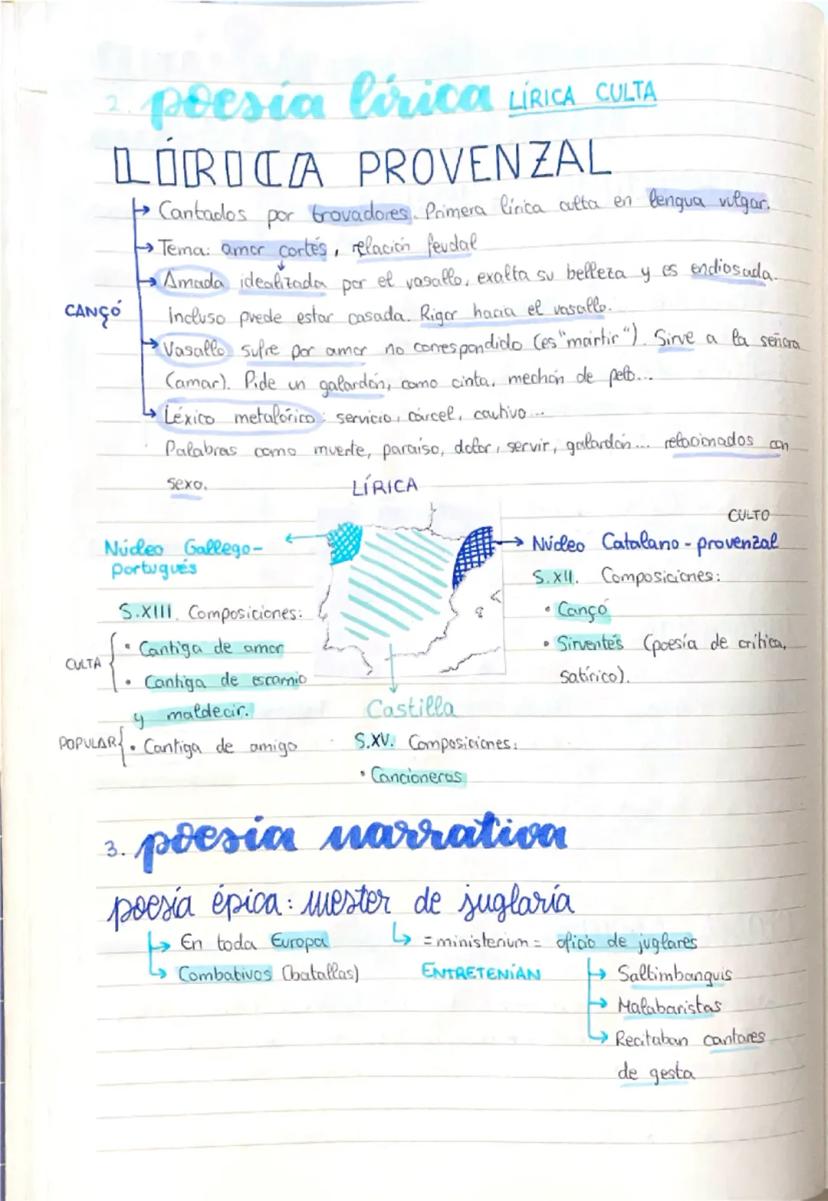 2. poesía lírica LÍRICA CULTA
LÍRICA PROVENZAL
→ Cantados por trovadores. Primera lírica culta en lengua vulgar.
→ Tema: amor cortés, relación feudal
→ Amada idealizada por el vasallo, exalta su belleza y es endiosada.
CANÇÓ
Incluso puede estar casada. Rigor hacia el vasallo.
→ Vasallo sufre por amor no correspondido (es "mártir"). Sirve a la señora
(amar). Pide un galardón, como cinta, mechón de pelo...
→ Léxico metafórico: servicio, cárcel, cautivo...
Palabras como muerte, paraíso, dolor, servir, galardón... relacionados con
sexo.
LÍRICA
CULTO
Núcleo Gallego-
portugués
S.XIII. Composiciones:
CULTA
• Cantiga de amor
• Cantiga de escarnio
y maldecir.
POPULAR
• Cantiga de amigo
Núcleo Catalano-provenzal
S.XII. Composiciones:
• Cançó
• Sirventés (poesía de crítica,
satírico).
Castilla
S.XV. Composiciones:
• Cancioneros
3. poesía narrativa
poesía épica: mester de juglaría
→ En toda Europa
→ Combativos (batallas)
↳ = ministerium = oficio de juglares
ENTRETENÍAN
→ Saltimbanquis
→ Malabaristas
→ Recitaban cantares
de gesta